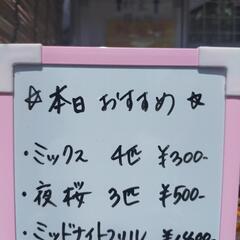 ☆本日 おすすめ☆
・ミックス 4匹 ¥300-
・夜桜 3匹 ¥500-
・ミッドナイトフリル